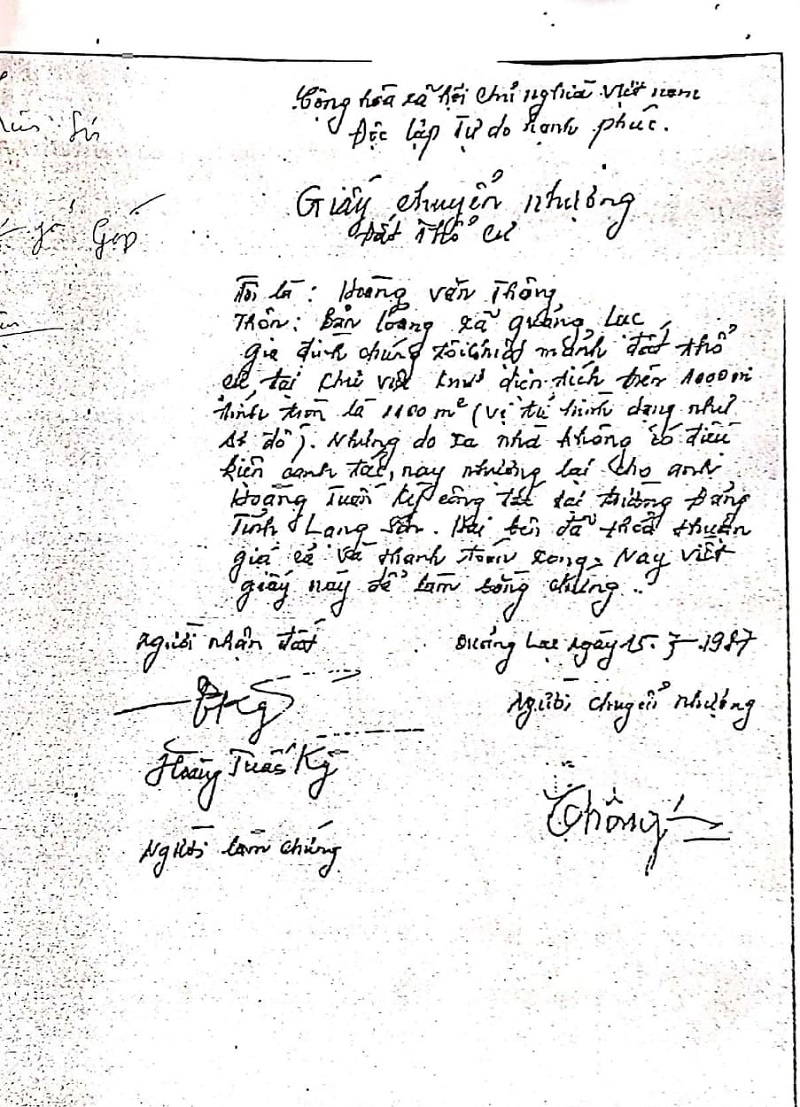 Cộng hòa xã hội chủ nghĩa Việt nam
Độc lập Tự do hạnh phúc.
Giấy chuyển nhượng
Đất Thổ cư
Gộp
Tôi là: Hoàng Văn Thông
Thôn: Bản Loỏng xã Quảng Lạc
gia đình chúng tôi có một mảnh đất thổ
cư, tại khu vực diện tích trên 1000m
tính tròn là 1100 m² (vị trí hình dạng như
sơ đồ). Nhưng do xa nhà không có điều
kiện canh tác, nay nhượng lại cho anh
Hoàng Tuấn Kỳ công tác tại trường Đảng
Tỉnh Lạng Sơn. Hai bên đã thỏa thuận
giá cả và thanh toán xong, Nay viết
giấy này để làm bằng chứng..
Người nhận đất
Quảng Lạc ngày 15. 7 - 1987
Người chuyển nhượng
Hoàng Tuấn Kỳ
Thông
Người làm chứng